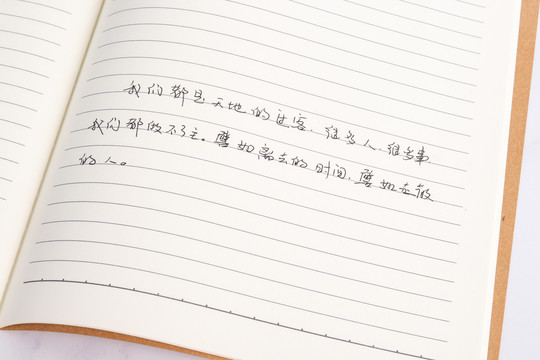 我们都是天地的过客，很多人，很多事
我们都做不了主。譬如离去的时间，譬如走散
的人。